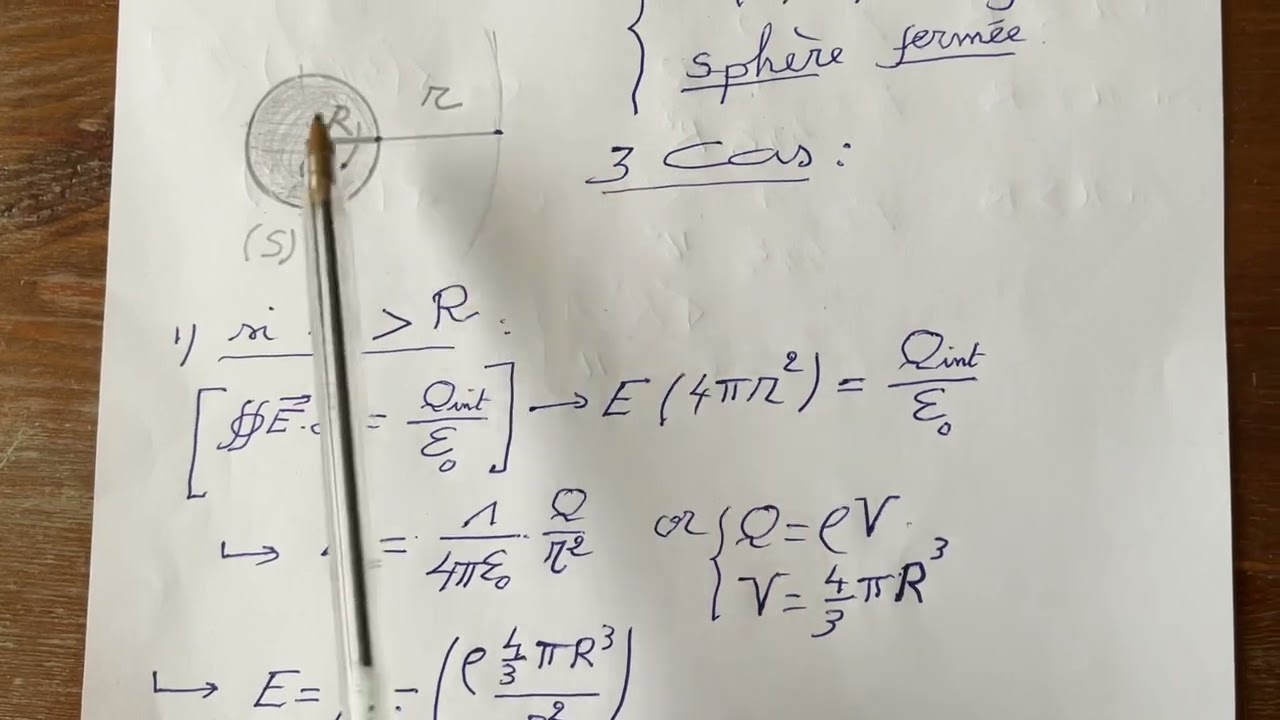 sphère fermée
3 Cas :
R
r
(S)
1) si > R :
[∯E⃗. = Qint/ε₀] → E (4πr²) = Qint/ε₀
↳ = 1/4πε₀ . Q/r² or { Q = ρV.
V = 4/3 πR³
↳ E = (ρ 4/3 πR³